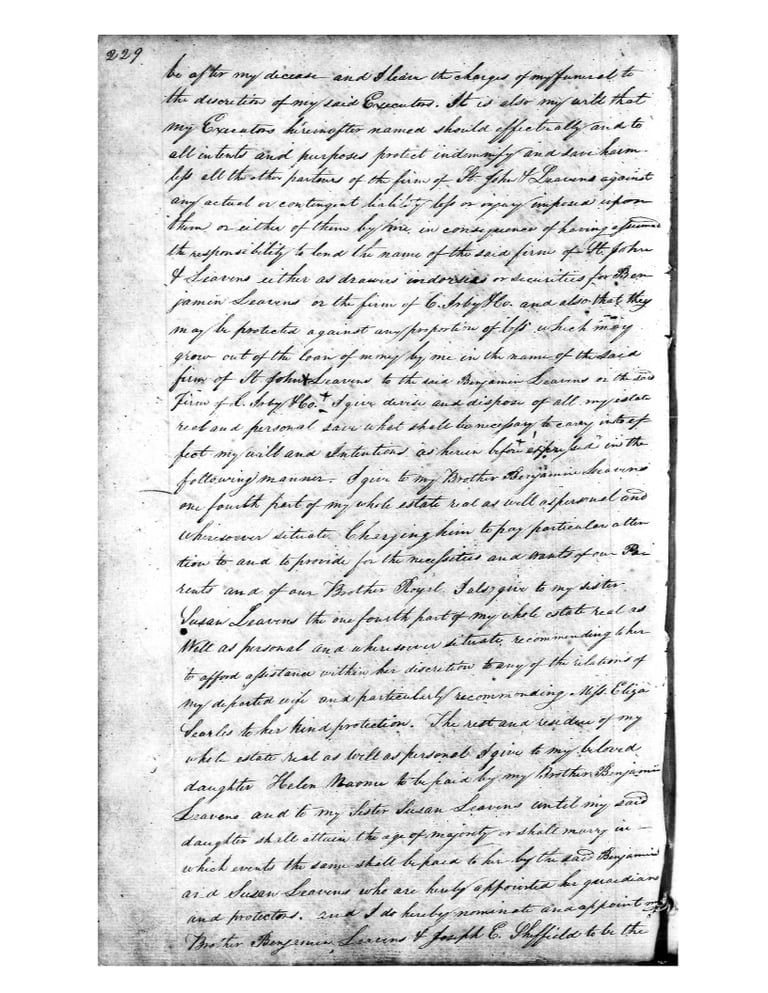 229
be after my decease and I leave the charges of my funeral to
the discretion of my said Executors. It is also my will that
my Executors hereinafter named should effectually and to
all intents and purposes protect indemnify and save harm
less all the other partners of the firm of St. John & Leavens against
any actual or contingent liability loss or injury imposed upon
them or either of them by me, in consequence of having assumed
the responsibility to lend the name of the said firm of St. John
& Leavens either as drawers indorsers or securities for Ben
jamin Leavens or the firm of C. Irby & Co. and also that they
may be protected against any proportion of loss which may
grow out of the loan of money by me in the name of the said
firm of St John & Leavens to the said Benjamin Leavens or the said
Firm of C. Irby & Co. I give devise and dispose of all my estate
real and personal save what shall be necessary to carry into ef
fect my will and Intentions as herein before expressed in the
following manner. I give to my Brother Benjamin Leavens
one fourth part of my whole estate real as well as personal and
wheresoever situate Cherging him to pay particular atten
tion to and to provide for the necessities and wants of our Pa
rents and of our Brother Royel. I also give to my sister
Susan Leavens the one fourth part of my whole estate real as
Well as personal and wheresoever situate, recommending to her
to afford assistance within her discretion to any of the relations of
my departed wife and particularly recommending Miss. Eliza
Searles to her kind protection. The rest and residue of my
whole estate real as well as personal I give to my beloved
daughter Helen Naomi to be paid by my Brother Benjamin
Leavens and to my Sister Susan Leavens until my said
daughter shall attain the age of majority or shall marry in
which events the same shall be paid to her by the said Benjamin
and Susan Leavens who are hereby appointed her guardians
and protectors. and I do hereby nominate and appoint my
Brother Benjamin Leavens & Joseph E. Sheffield to be the